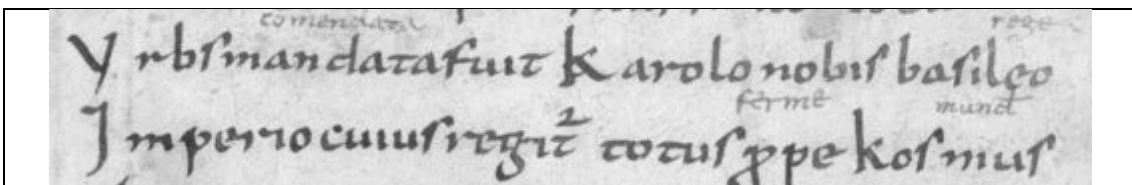 comendata rege
Vrbs mandata fuit Karolo nobis basileo
fermè mund
Imperio cuius regit totus ꝓpe kosmus